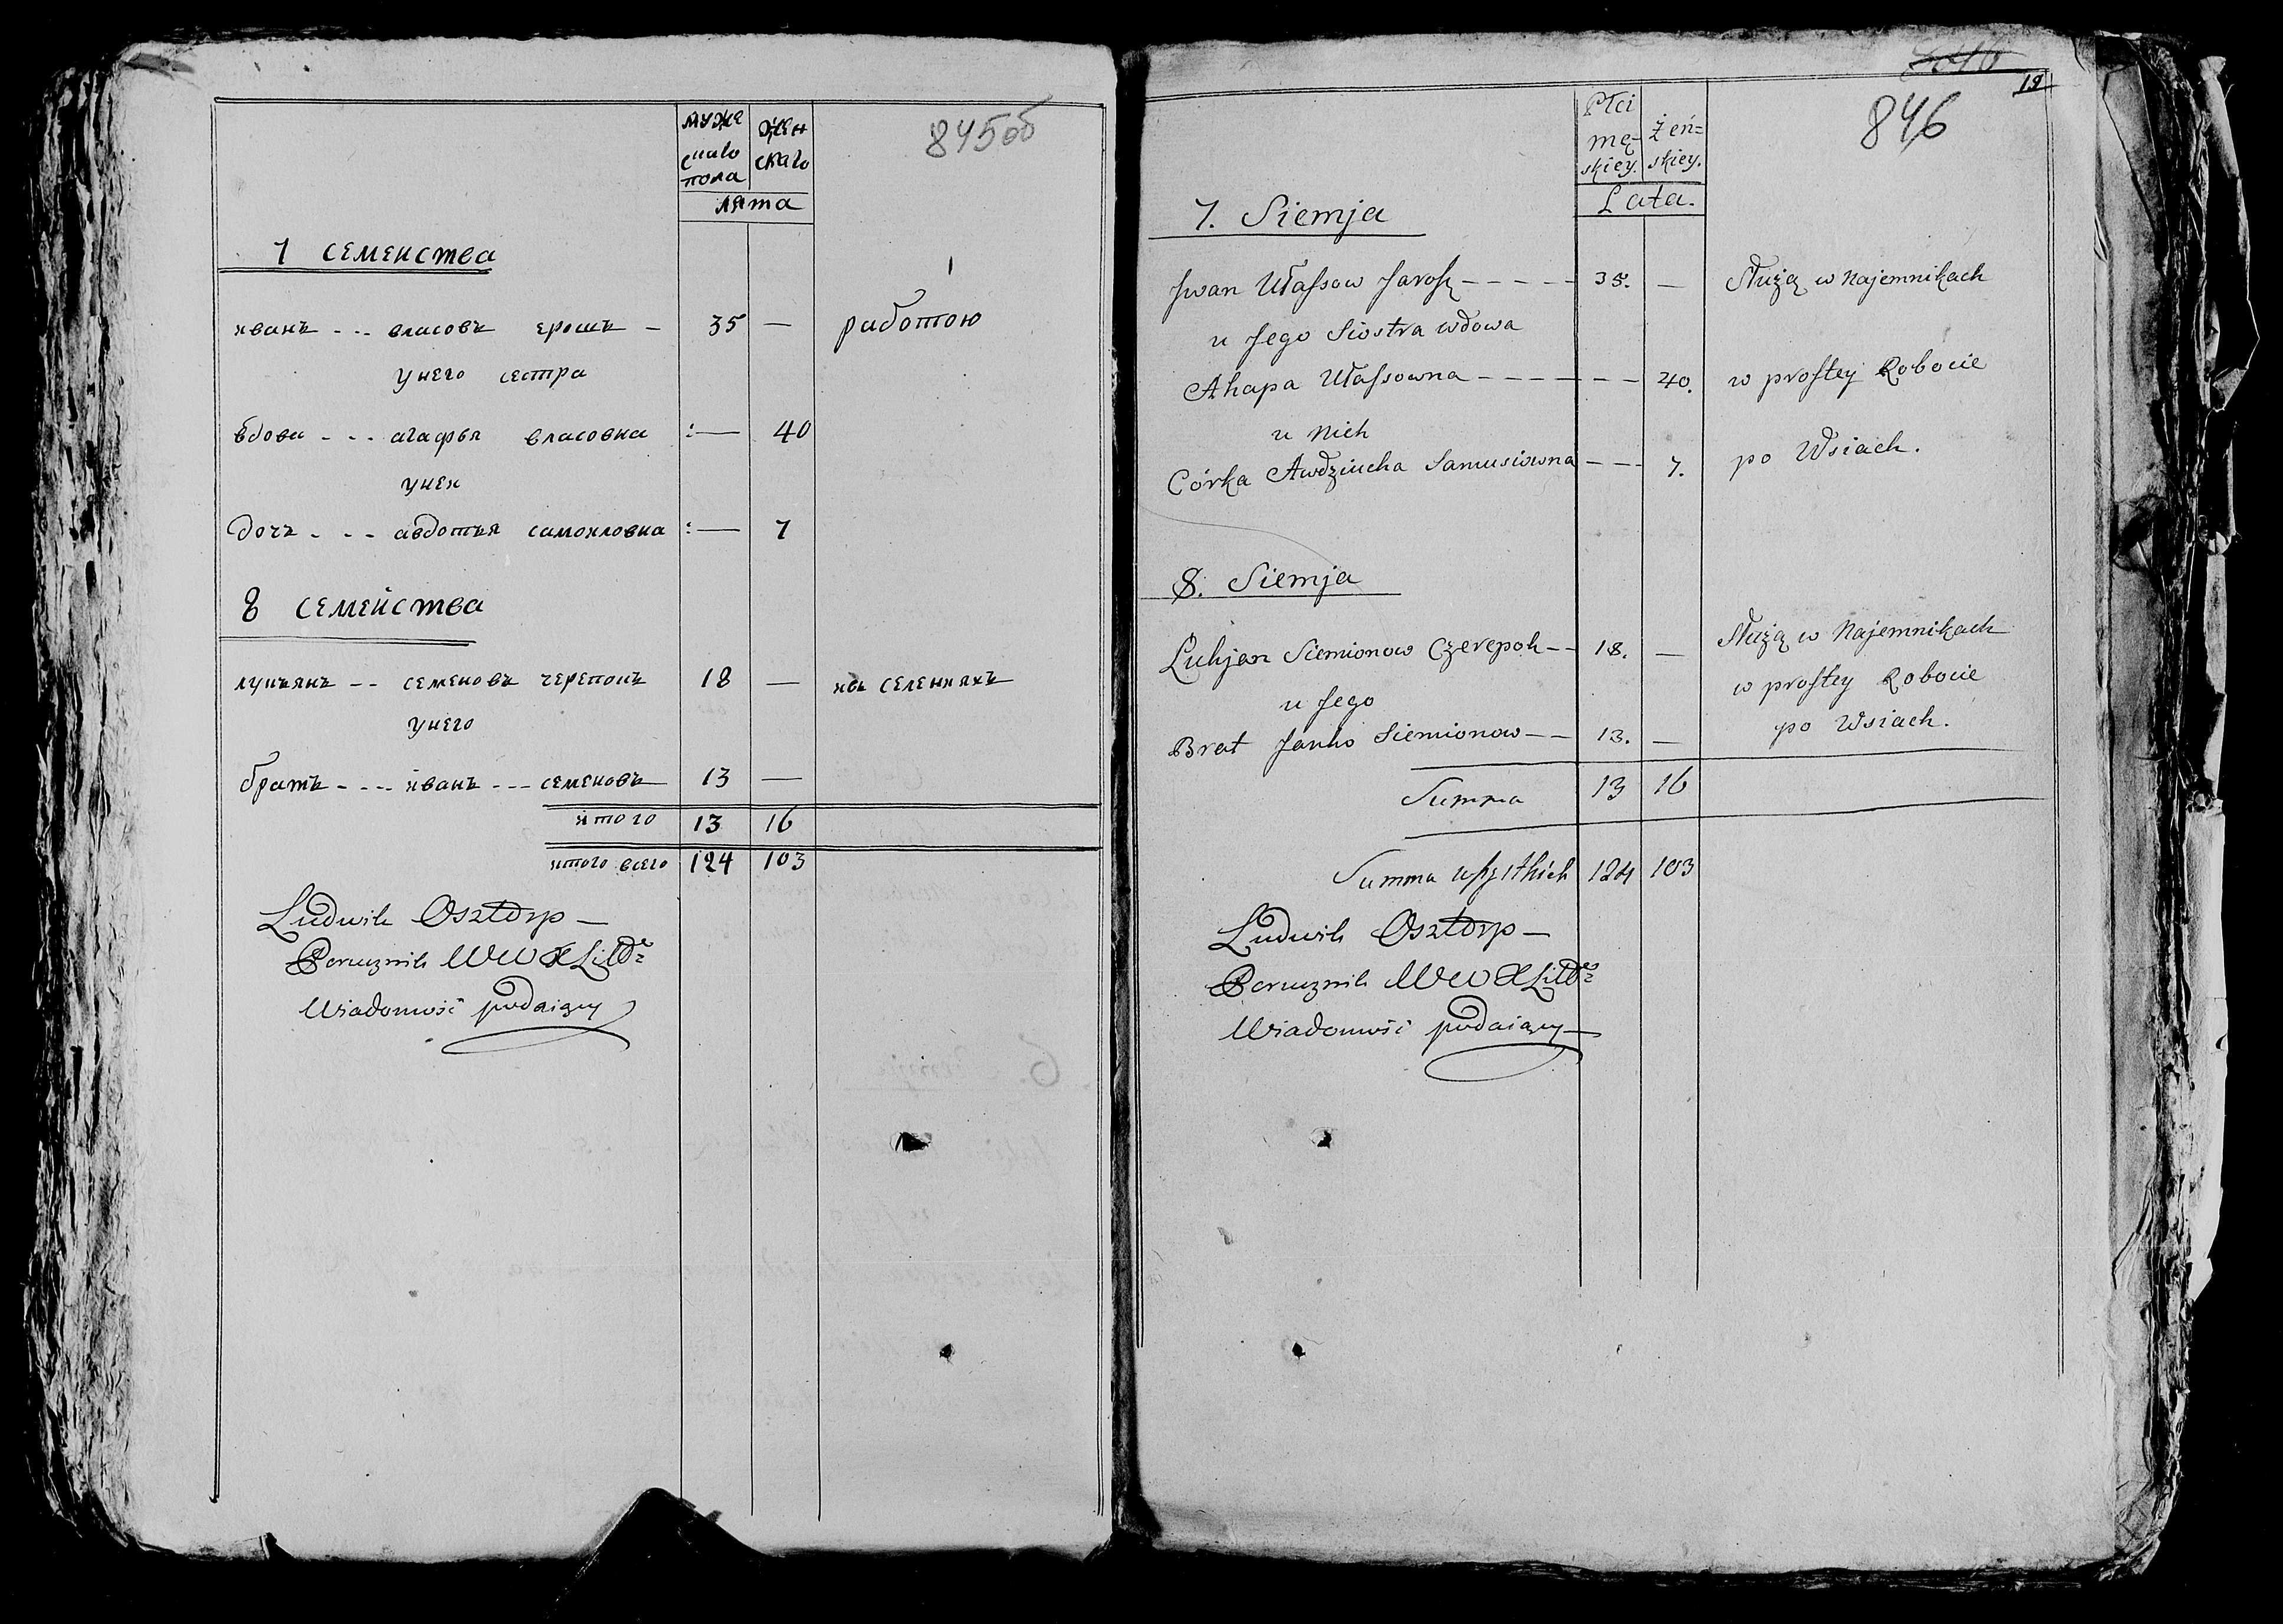 845об
муже
скаго
пола
жен
скаго
лята
7 семейства
иванъ --- власовъ ерошъ - 35 — работою
у него сестра
вдова --- агафья власовна :— 40
у неи
дочъ --- авдотья самоиловна :— 7
8 семейства
лукьянъ -- семеновъ черепокъ 18 — на селенияхъ
у него
братъ ---- иванъ --- семеновъ 13 —
итого 13 16
итого всего 124 103
Ludwik Osztorp —
Porucznik WWXLitt
Wiadomość podaiący
19
846
Płci
mę-
skiey.
żeń=
skiey.
Lata.
7. Siemja
Jwan Ułassow Jarosz ----- 35. — Służą w Najemnikach
u Jego Siostra wdowa
Ahapa Ułassowna ------ 40. w prostey Robocie
u Nich
Córka Awdziucha Samusiowna --- 7. po Wsiach.
8. Siemja
Łukjan Siemionow Czerepok -- 18. — Służą w Najemnikach
u Jego w prostey Robocie
Brat Janko Siemionow -- 13. — po Wsiach.
Summa 13 16
Summa wszystkich 124 103
Ludwik Osztorp —
Porucznik WWXLitt
Wiadomość podaiący